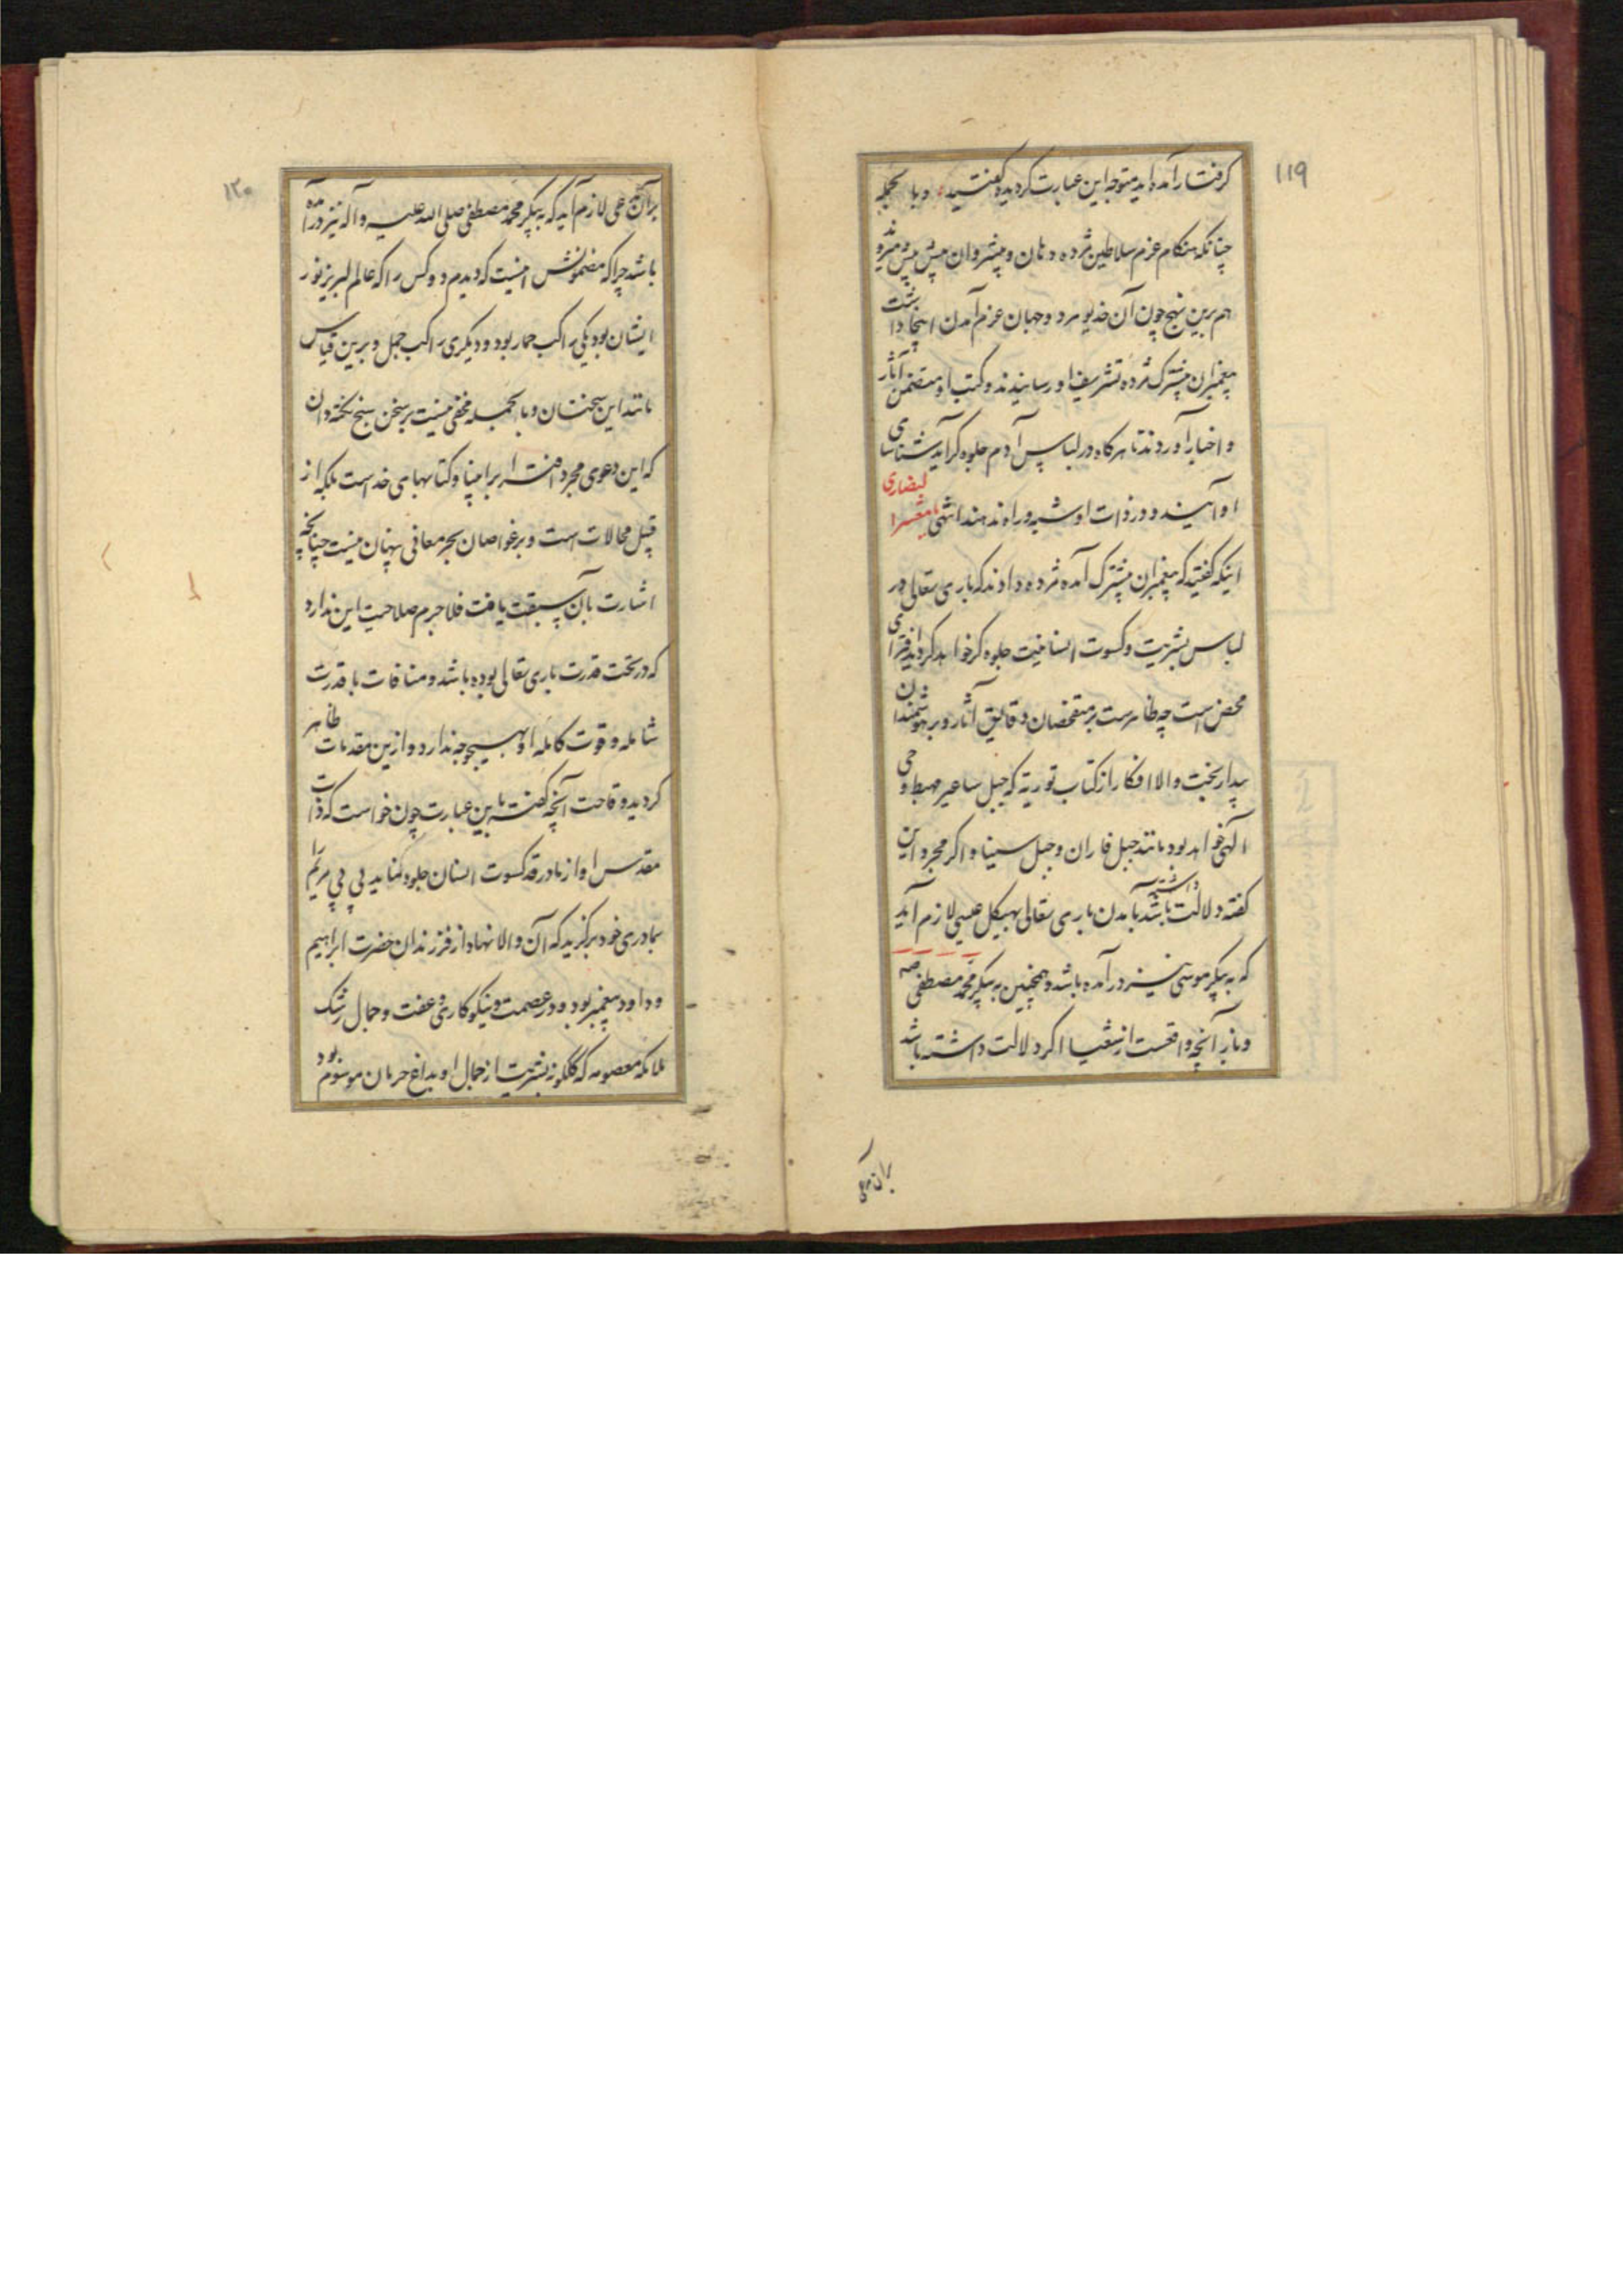 ۱۱۹
گرفتار آمده‌اید متوجه این عبارت گردیده گفتید و بالجمله
چنانکه هنکام عزم سلاطین مژده دهان و پیشروان پیش پیش میروند
هم برین نهج چون آن خدیو هر دو جهان عزم آمدن اینجا داشت
پیغمبران پیشترک مژده تشریف او رسانیدند و کتب او متضمن آثار
و اخبار آوردند تا هرکاه در لباس آدم جلوه کر آید شناسای
او آیند و در ذات او شبه و راه ندهند انتهی یا معشر النصاری
اینکه کفتید که پیغمبران پیشترک آمده مژده دادند که باری تعالی در
لباس بشریت و کسوت انسانیت جلوه کر خواهد کردید افترای
محض است چه ظاهرست بر متفحصان دقایق آثار و بر هوشمندان
بیدار بخت والا افکار از کتاب توریة که جبل ساعیر مهبط وحی
الهی خواهد بود مانند جبل فاران و جبل سینا و اکر مجرد این
کفته دلالت داشته باشد بآمدن باری تعالی بهیکل عیسی لازم آید
که به پیکر موسی نیز در آمده باشد و همچنین به پیکر محمد مصطفی صه
و باز آنچه واقعست از شعیا اکر دلالت داشته باشد
بر آن مدعی
۱۲۰
بر آن مدعی لازم آید که به پیکر محمد مصطفی صلی الله علیه و آله نیز در آمده
باشد چرا که مضمونش اینست که دیدم دو کس را که عالم لبریز نور
ایشان بود یکی راکب حمار بود و دیکری راکب جمل و برین قیاس
مانند این سخنان و بالجمله مخفی نیست بر سخن سنج نکته دان
که این دعوی مجرد افترا بر انبیا و کتابهای خداست بلکه از
قبیل محالات است و بر غواصان بحر معانی پنهان نیست چنانچه
اشارت بآن سبقت یافت فلا جرم صلاحیت این ندارد
که در تحت قدرت باری تعالی بوده باشد و منافات با قدرت
شامله و قوت کامله او بهیچوجه ندارد و ازین مقدمات ظاهر
کردید وقاحت آنچه کفته باین عبارت چون خواست که ذات
مقدس او از مادر در کسوت انسان جلوه نماید بی بی مریم را
بمادری خود برکزید که آن والا نهاد از فرزندان حضرت ابراهیم
و داود پیغمبر بود و در عصمت و نیکوکاری و عفت و جمال رشک
ملائکه معصومه که کلکونه بشریت از جمال او بداغ حرمان موسوم بود